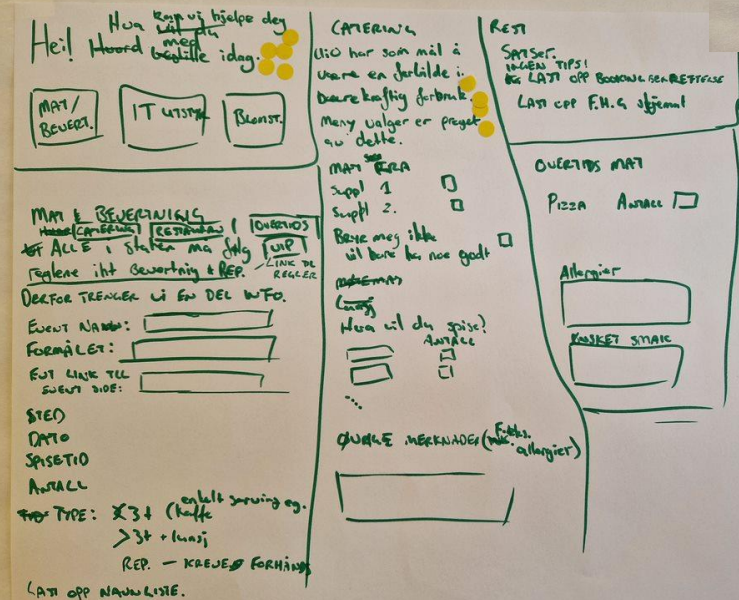 Hei! Hva kan vi hjelpe deg
med idag.
MAT/
BEVERT.
IT UTSTYR
BLOMST.
MAT & BEVERTNING
CATERING RESTAURANT OVERTIDS
ALLE i staten må følge VIP
reglene iht Bevertning & REP. LINK TIL
REGLER
DERFOR TRENGER VI EN DEL INFO.
EVENT NAVN:
FORMÅLET:
EVT LINK TIL
EVENT SIDE:
STED
DATO
SPISETID
ANTALL
TYPE: <3t (enkelt servering eg.
kaffe
>3t + lunsj
REP. – KREVER FORHÅND
LAST OPP NAVNLISTE.
CATERING
UiO har som mål å
være en forbilde i
bærekraftig forbruk.
Meny valger er preget
av dette.
MAT FRA
Suppl 1
Suppl 2.
Bryr meg ikke
vil bare ha noe godt
Lunsj
Hva vil du spise?
ANTALL
ØVRIGE MERKNADER (F.eks.
allergier)
REST
SATSER.
INGEN TIPS!
LAST OPP BOOKING BEKREFTELSE
LAST OPP F.H.G skjema!
OVERTIDS MAT
PIZZA ANTALL
Allergier
ØNSKET SMAK